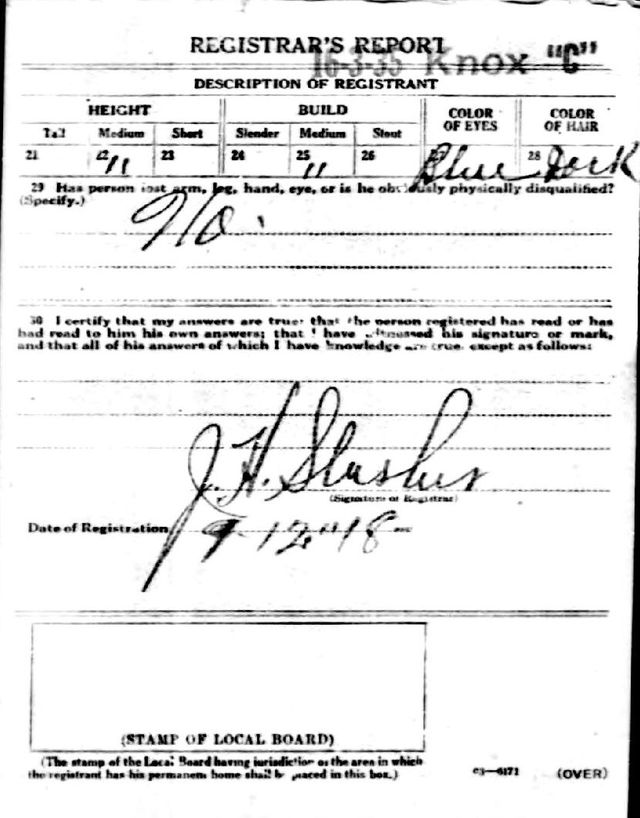 REGISTRAR'S REPORT
16-3-35 Knox "C"
DESCRIPTION OF REGISTRANT
HEIGHT BUILD COLOR OF EYES COLOR OF HAIR
Tall Medium Short Slender Medium Stout
21 22 " 23 24 25 " 26 27 Blue 28 Dark
29 Has person lost arm, leg, hand, eye, or is he obviously physically disqualified?
(Specify.)
No.
30 I certify that my answers are true; that the person registered has read or has
had read to him his own answers; that I have witnessed his signature or mark,
and that all of his answers of which I have knowledge are true, except as follows:
J. H. Slusher
(Signature of Registrar)
Date of Registration 9-12-18-
(STAMP OF LOCAL BOARD)
(The stamp of the Local Board having jurisdiction of the area in which
the registrant has his permanent home shall be placed in this box.)
03-6171 (OVER)